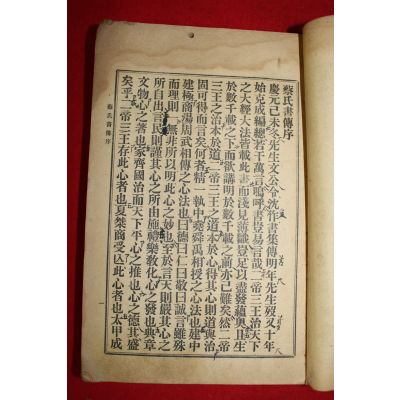 蔡氏書傳序
慶元己未冬先生文公令沈作書集傳明年先生歿又十年
始克成編總若干萬言嗚呼書豈易言哉二帝三王治天下
之大經大法皆載此書而淺見薄識豈足以盡發蘊奧且生
於數千載之下而欲講明於數千載之前亦已難矣然二帝
三王之治本於道二帝三王之道本於心得其心則道與治
固可得而言矣何者精一執中堯舜禹相授之心法也建中
建極商湯周武相傳之心法也曰德曰仁曰敬曰誠言雖殊
而理則一無非所以明此心之妙也至於言天則嚴其心之
所自出言民則謹其心之所由施禮樂敎化心之發也典章
文物心之著也家齊國治而天下平心之推也心之德其盛
矣乎二帝三王存此心者也夏桀商受亡此心者也太甲成
蔡氏書傳序